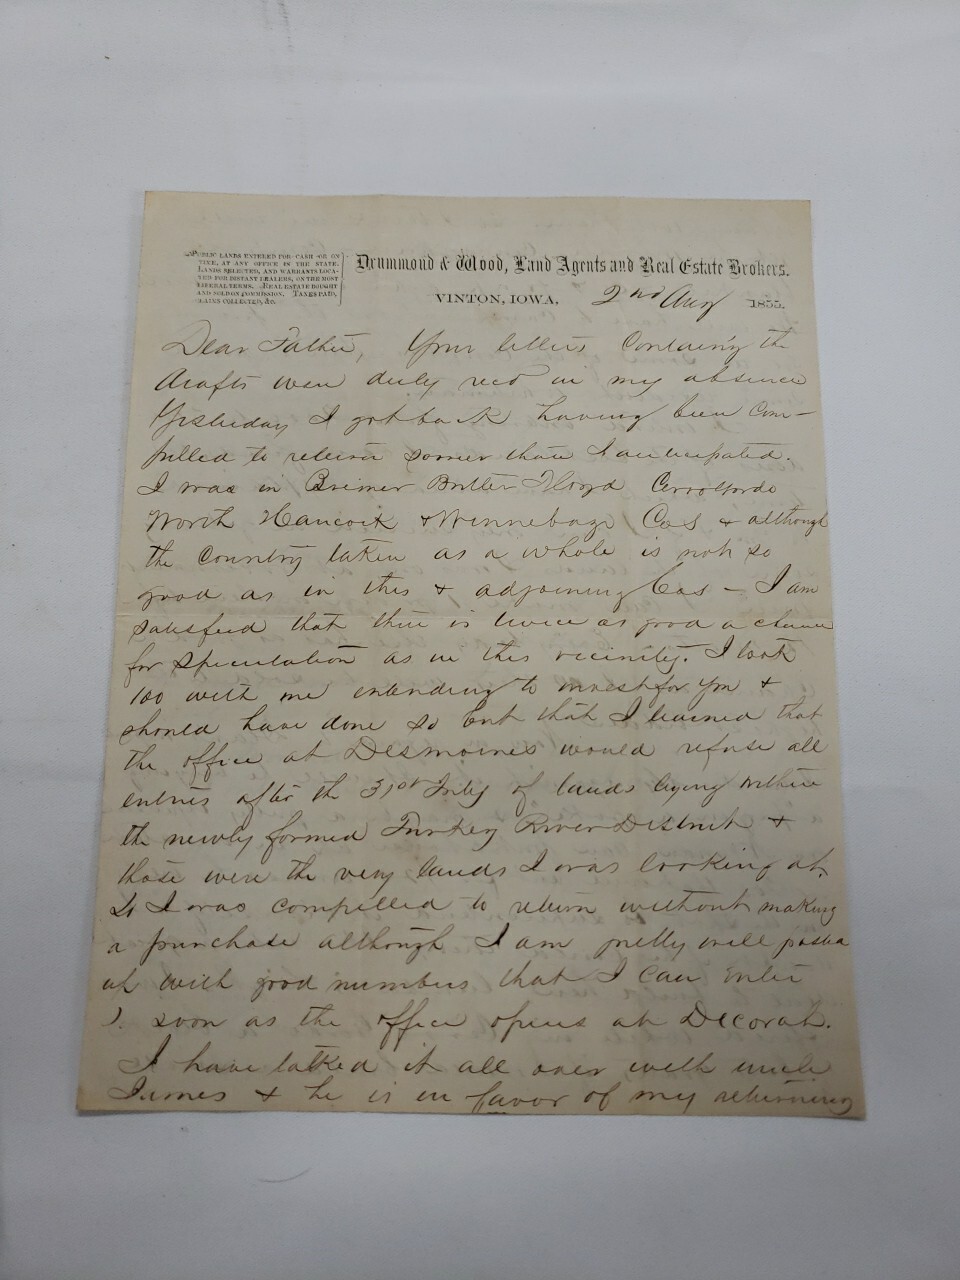 PUBLIC LANDS ENTERED FOR CASH OR ON
TIME, AT ANY OFFICE IN THE STATE.
LANDS SELECTED, AND WARRANTS LOCA-
TED FOR DISTANT DEALERS, ON THE MOST
LIBERAL TERMS. REAL ESTATE BOUGHT
AND SOLD ON COMMISSION. TAXES PAID,
CLAIMS COLLECTED, &c.
Drummond & Wood, Land Agents and Real Estate Brokers.
VINTON, IOWA, 2nd Aug 1855.
Dear Father, Your letters containing the
drafts were duly recd in my absence
Yesterday I got back having been com-
pelled to return sooner than I anticipated.
I was in Bremer Butler Floyd Cerrogordo
Worth Hancock & Winnebago Cos & although
the country taken as a whole is not so
good as in this & adjoining Cos – I am
satisfied that there is twice as good a chance
for speculation as in this vicinity. I took
100 with me intending to invest for you &
should have done so but that I learned that
the office at Desmoines would refuse all
entries after the 31st July of lands lying within
the newly formed Turkey River District &
those were the very lands I was looking at.
So I was compelled to return without making
a purchase although I am pretty well posted
up with good numbers that I can enter
soon as the office opens at Decorah.
I have talked it all over with uncle
James & he is in favor of my returning